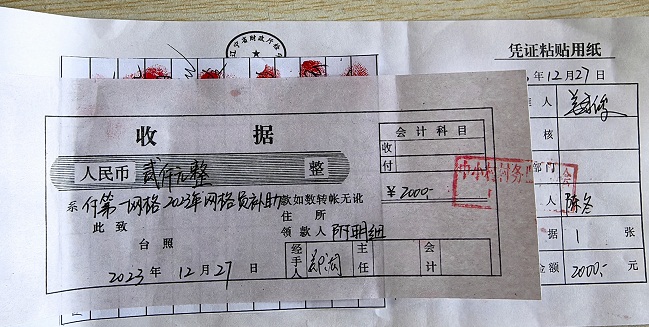 凭证粘贴用纸
年12月27日
收据
会计科目
收
付
人民币 贰仟元整 整
¥2000-
系付第一网格2023年网格员补助款如数转帐无讹
此致
住所
台照
领款人 附明细
2023年12月27日
经手人
主任
会计
人
核
部门
人 陈冬
据 1 张
金额 2000- 元